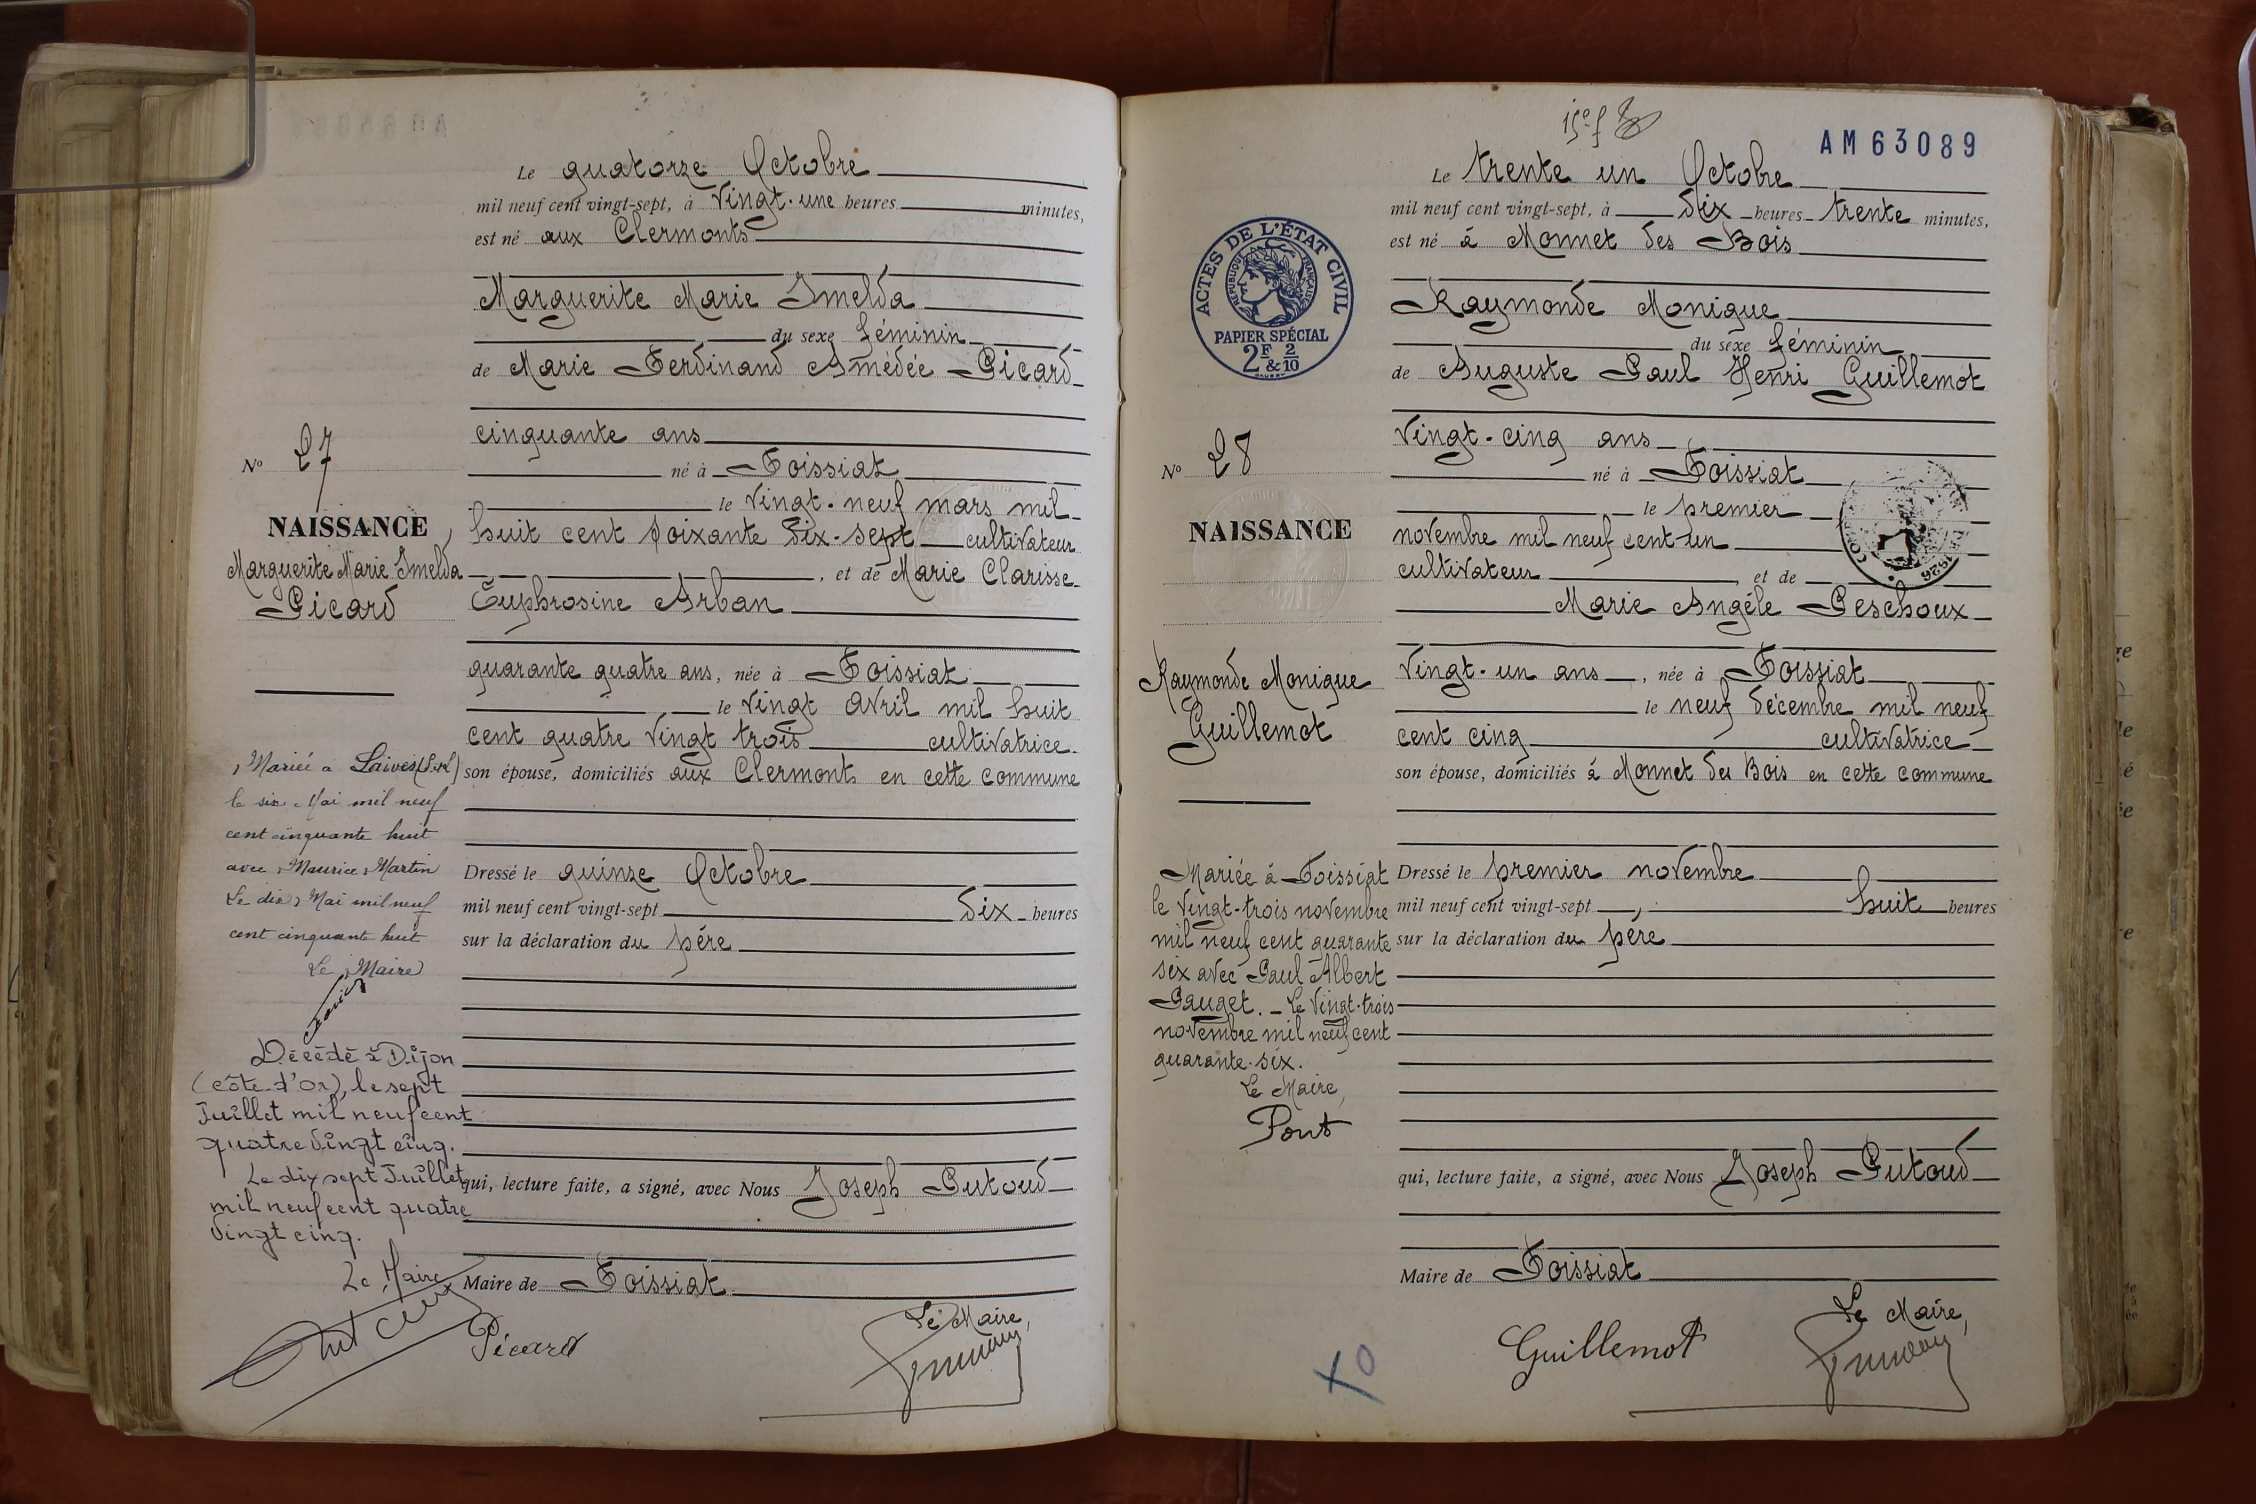 Le quatorze Octobre
mil neuf cent vingt-sept, à Vingt-une heures minutes,
est né aux Clermonts
Marguerite Marie Imelda
du sexe féminin
de Marie Ferdinand Amédée Picard
cinquante ans
né à Foissiat
le Vingt-neuf mars mil
huit cent soixante dix-sept cultivateur
, et de Marie Clarisse
Euphrosine Arban
quarante quatre ans, née à Foissiat
le Vingt avril mil huit
cent quatre vingt trois cultivatrice
son épouse, domiciliés aux Clermonts en cette commune
Dressé le quinze Octobre
mil neuf cent vingt-sept dix heures
sur la déclaration du père
qui, lecture faite, a signé, avec Nous Joseph Putoud
Maire de Foissiat
Le Maire,
Picard
No 27
NAISSANCE
Marguerite Marie Imelda
Picard
Mariée à Laives (S-&-L)
le six Mai mil neuf
cent cinquante huit
avec Maurice Martin
Le dix Mai mil neuf
cent cinquante huit
Le Maire
Décédé à Dijon
(côte-d'Or), le sept
Juillet mil neuf cent
quatre vingt cinq.
Le dix sept Juillet
mil neuf cent quatre
vingt cinq.
Le Maire
AM63089
Le trente un Octobre
mil neuf cent vingt-sept, à dix heures trente minutes,
est né à Monnet des Bois
Raymonde Monique
du sexe féminin
de Auguste Paul Henri Guillemot
Vingt-cinq ans
né à Foissiat
le premier
novembre mil neuf cent-un
cultivateur et de
Marie Angèle Peschoux
Vingt-un ans, née à Foissiat
le neuf décembre mil neuf
cent cinq cultivatrice
son épouse, domiciliés à Monnet des Bois en cette commune
Dressé le premier novembre
mil neuf cent vingt-sept, huit heures
sur la déclaration du père
qui, lecture faite, a signé, avec Nous Joseph Putoud
Maire de Foissiat
Le Maire,
Guillemot
ACTES DE L'ÉTAT CIVIL
RÉPUBLIQUE FRANÇAISE
PAPIER SPÉCIAL
2F & 2/10
No 28
NAISSANCE
Raymonde Monique
Guillemot
Mariée à Foissiat
le vingt-trois novembre
mil neuf cent quarante
six avec Paul Albert
Pauget. - Le Vingt-trois
novembre mil neuf cent
quarante-six.
Le Maire,
Pont
XO